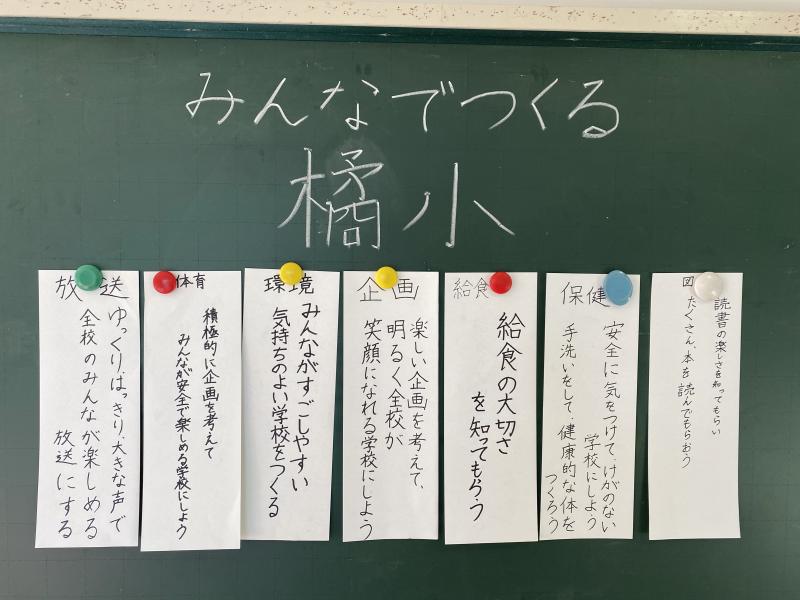 みんなでつくる
橘小
放送
ゆっくり、はっきり、大きな声で
全校のみんなが楽しめる
放送にする
体育
積極的に企画を考えて
みんなが安全で楽しめる学校にしよう
環境
みんながすごしやすい
気持ちのよい学校をつくる
企画
楽しい企画を考えて、
明るく全校が
笑顔になれる学校にしよう
給食
給食の大切さ
を知ってもらう
保健
安全に気をつけて、けがのない
学校にしよう
手洗いをして、健康的な体を
つくろう
図
読書の楽しさを知ってもらい
たくさん、本を読んでもらおう